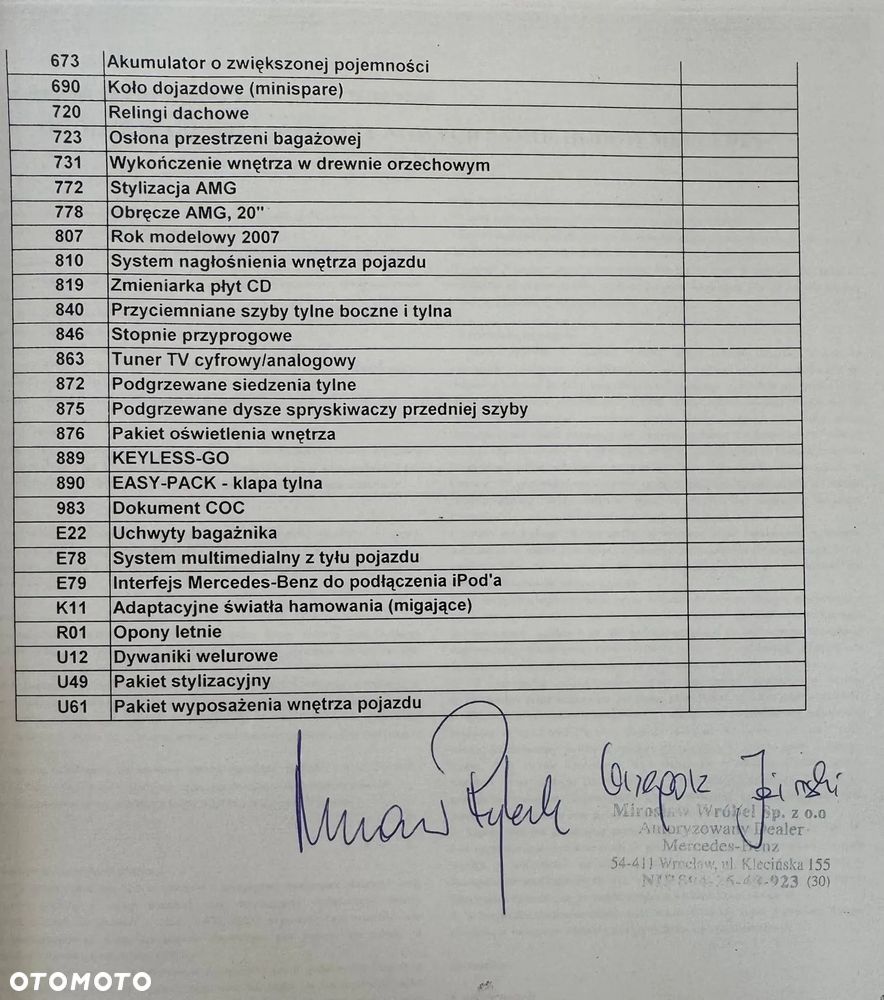 673 Akumulator o zwiększonej pojemności
690 Koło dojazdowe (minispare)
720 Relingi dachowe
723 Osłona przestrzeni bagażowej
731 Wykończenie wnętrza w drewnie orzechowym
772 Stylizacja AMG
778 Obręcze AMG, 20"
807 Rok modelowy 2007
810 System nagłośnienia wnętrza pojazdu
819 Zmieniarka płyt CD
840 Przyciemniane szyby tylne boczne i tylna
846 Stopnie przyprogowe
863 Tuner TV cyfrowy/analogowy
872 Podgrzewane siedzenia tylne
875 Podgrzewane dysze spryskiwaczy przedniej szyby
876 Pakiet oświetlenia wnętrza
889 KEYLESS-GO
890 EASY-PACK - klapa tylna
983 Dokument COC
E22 Uchwyty bagażnika
E78 System multimedialny z tyłu pojazdu
E79 Interfejs Mercedes-Benz do podłączenia iPod'a
K11 Adaptacyjne światła hamowania (migające)
R01 Opony letnie
U12 Dywaniki welurowe
U49 Pakiet stylizacyjny
U61 Pakiet wyposażenia wnętrza pojazdu
Mirosław Wróbel Sp. z o.o
Autoryzowany Dealer
Mercedes-Benz
54-411 Wrocław, ul. Klecińska 155
NIP 923 (30)
OTOMOTO